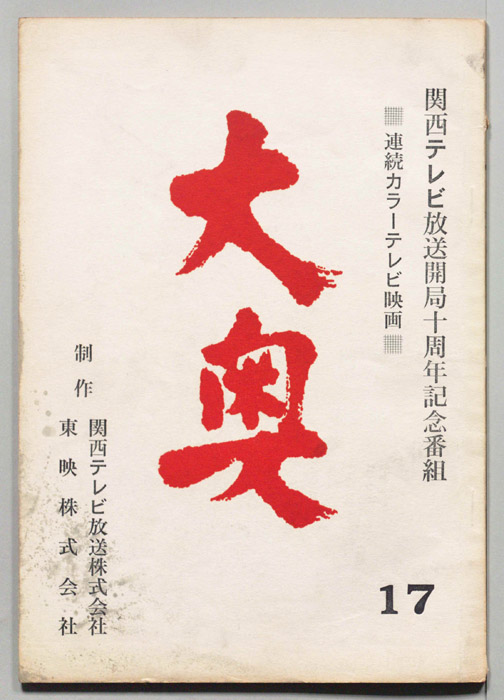 関西テレビ放送開局十周年記念番組
連続カラーテレビ映画
大奥
制作
関西テレビ放送株式会社
東映株式会社
17